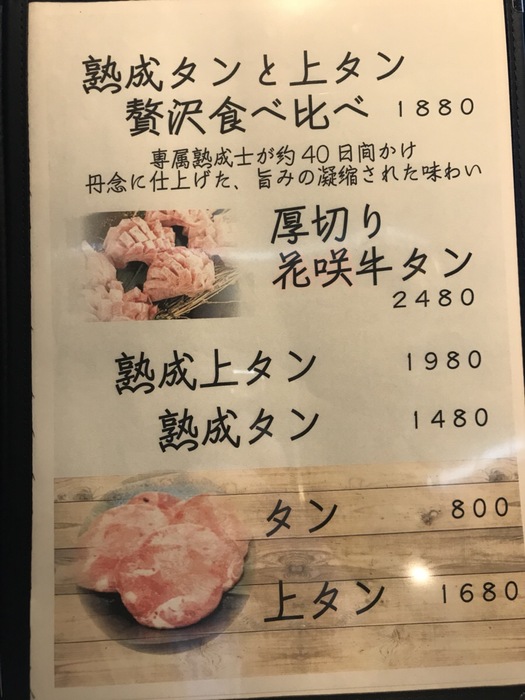 熟成タンと上タン
贅沢食べ比べ 1880
専属熟成士が約40日間かけ
丹念に仕上げた、旨みの凝縮された味わい
厚切り
花咲牛タン
2480
熟成上タン 1980
熟成タン 1480
タン 800
上タン 1680